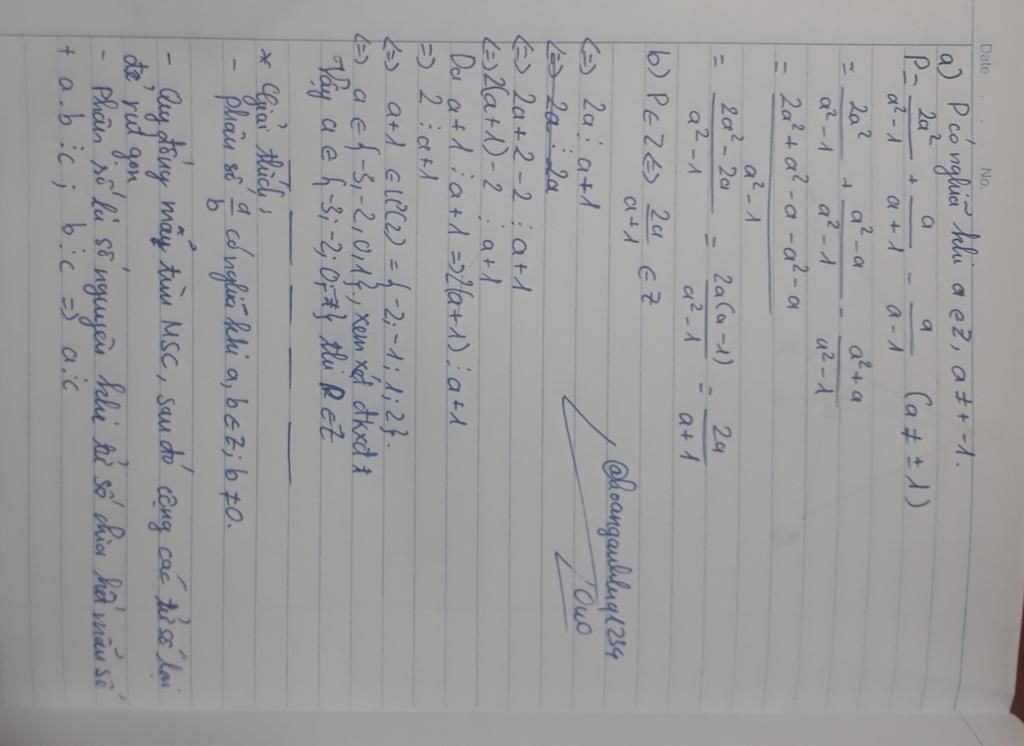 Date No.
a) P có nghĩa khi a ∈ Z, a ≠ + -1.
P = 2a²/a²-1 + a/a+1 - a/a-1 (a ≠ ±1)
= 2a²/a²-1 + a²-a/a²-1 - a²+a/a²-1
= 2a²+a²-a-a²-a/a²-1
= 2a²-2a/a²-1 = 2a(a-1)/a²-1 = 2a/a+1
b) P ∈ Z <=> 2a/a+1 ∈ Z
@hoanganhluy1234
OwO
<=> 2a ⋮ a+1
<=> 2a ⋮ 2a
<=> 2a+2-2 ⋮ a+1
<=> 2(a+1)-2 ⋮ a+1
Da a+1 ⋮ a+1 => 2(a+1) ⋮ a+1
=> 2 ⋮ a+1
<=> a+1 ∈ Ư(2) = {-2; -1; 1; 2}.
<=> a ∈ {-3, -2, 0, 1}, xem xét đkxđ
Vậy a ∈ {-3; -2; 0} thì P ∈ Z
* Giải thích:
- phân số a/b có nghĩa khi a, b ∈ Z; b ≠ 0.
- Quy đồng mẫu tìm MSC, sau đó cộng các tử số lại
để rút gọn
- phân số là số nguyên khi tử số chia hết mẫu số
+ a.b ⋮ c; b ⋮ c => a ⋮ c